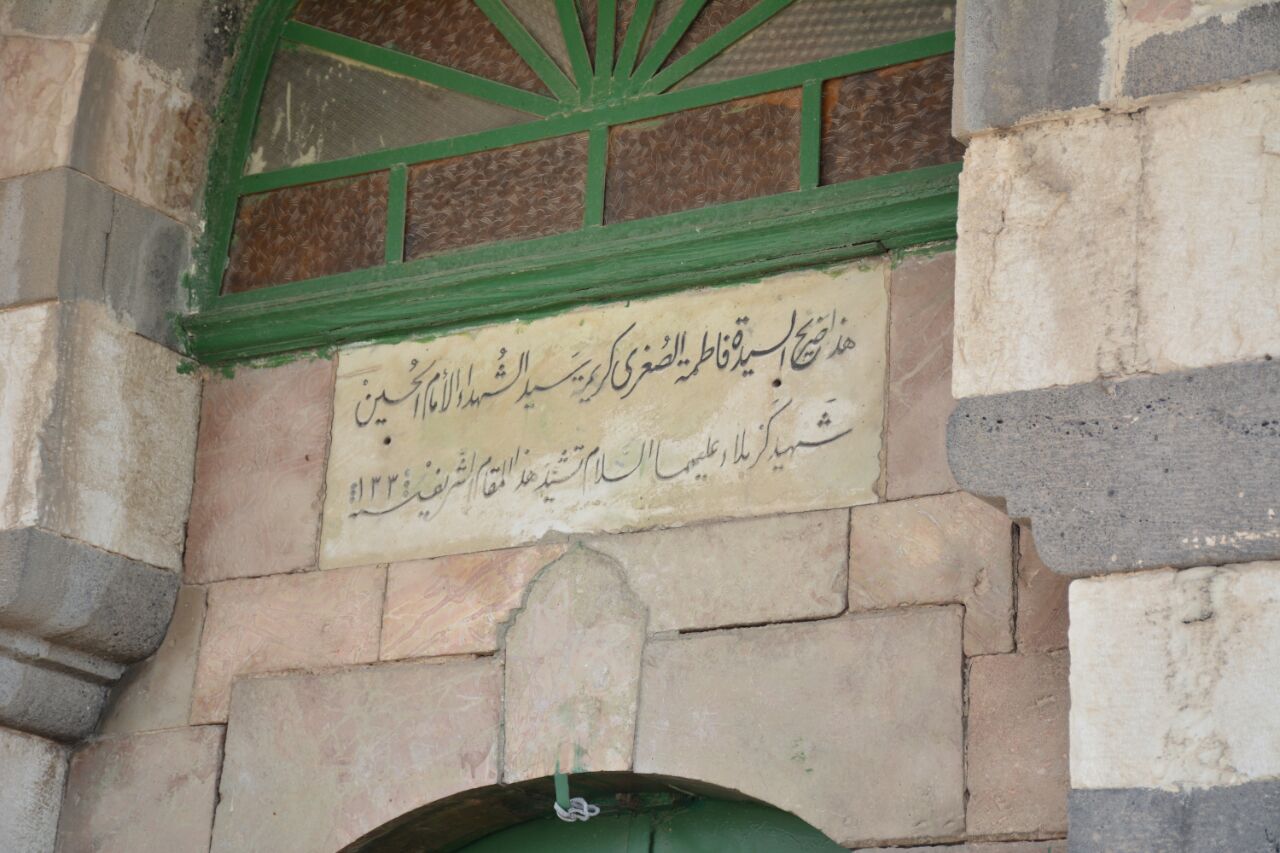 هذا ضريح السيدة فاطمة الصُغرى كريمة سَيد الشُهداء الأمام الحُسينْ
شَهيد كَربلاء عليهما السَّلام تشيّد هذا المقام الشريف سنة ١٣٣٠